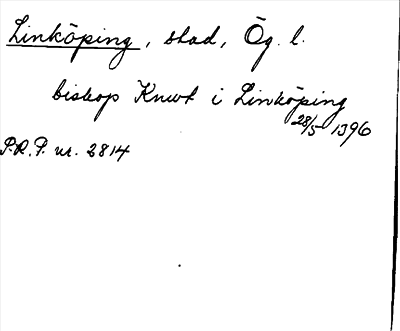 Linköping, stad, Ög. l.
biskop Knut i Linköping
28/5 1396
P.R.P. nr. 2814